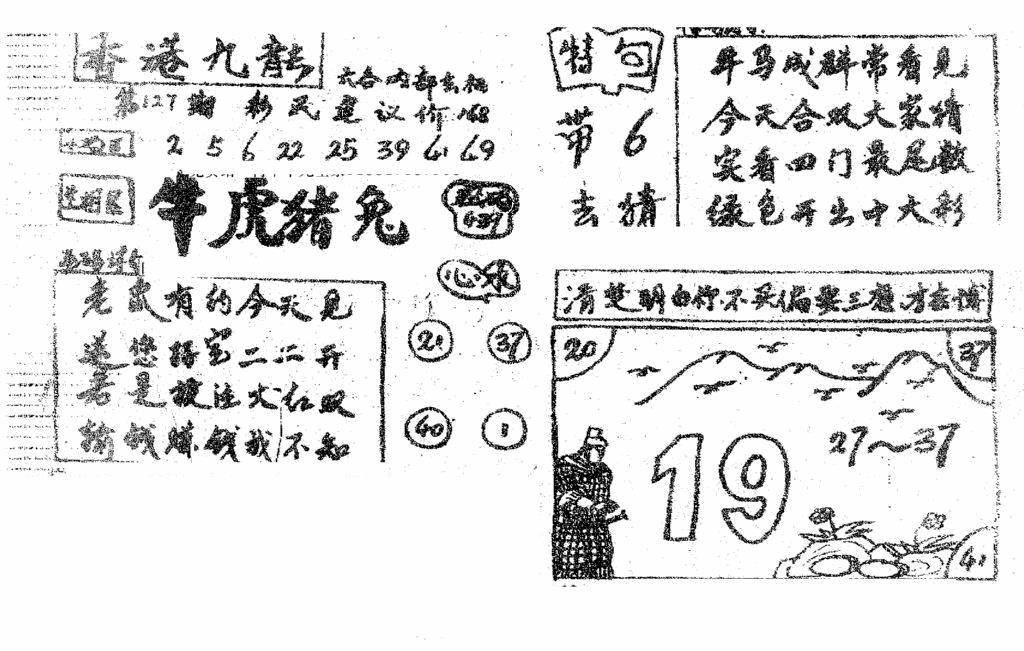 香港九龍
六合内部玄机
第127期 彩民建议价168
2 5 6 22 25 39 41 49
牛虎猪兔
心水
老鼠有约今天见
送您好宝二二开
若是投注火红双
输钱赚钱我不知
21 37
40 1
特句
带6
去猜
牛马成群常看见
今天合双大家猜
实看四门最尾数
绿色开出中大彩
清楚明白你不买偏要三想才去博
20 37
27～37
19
41